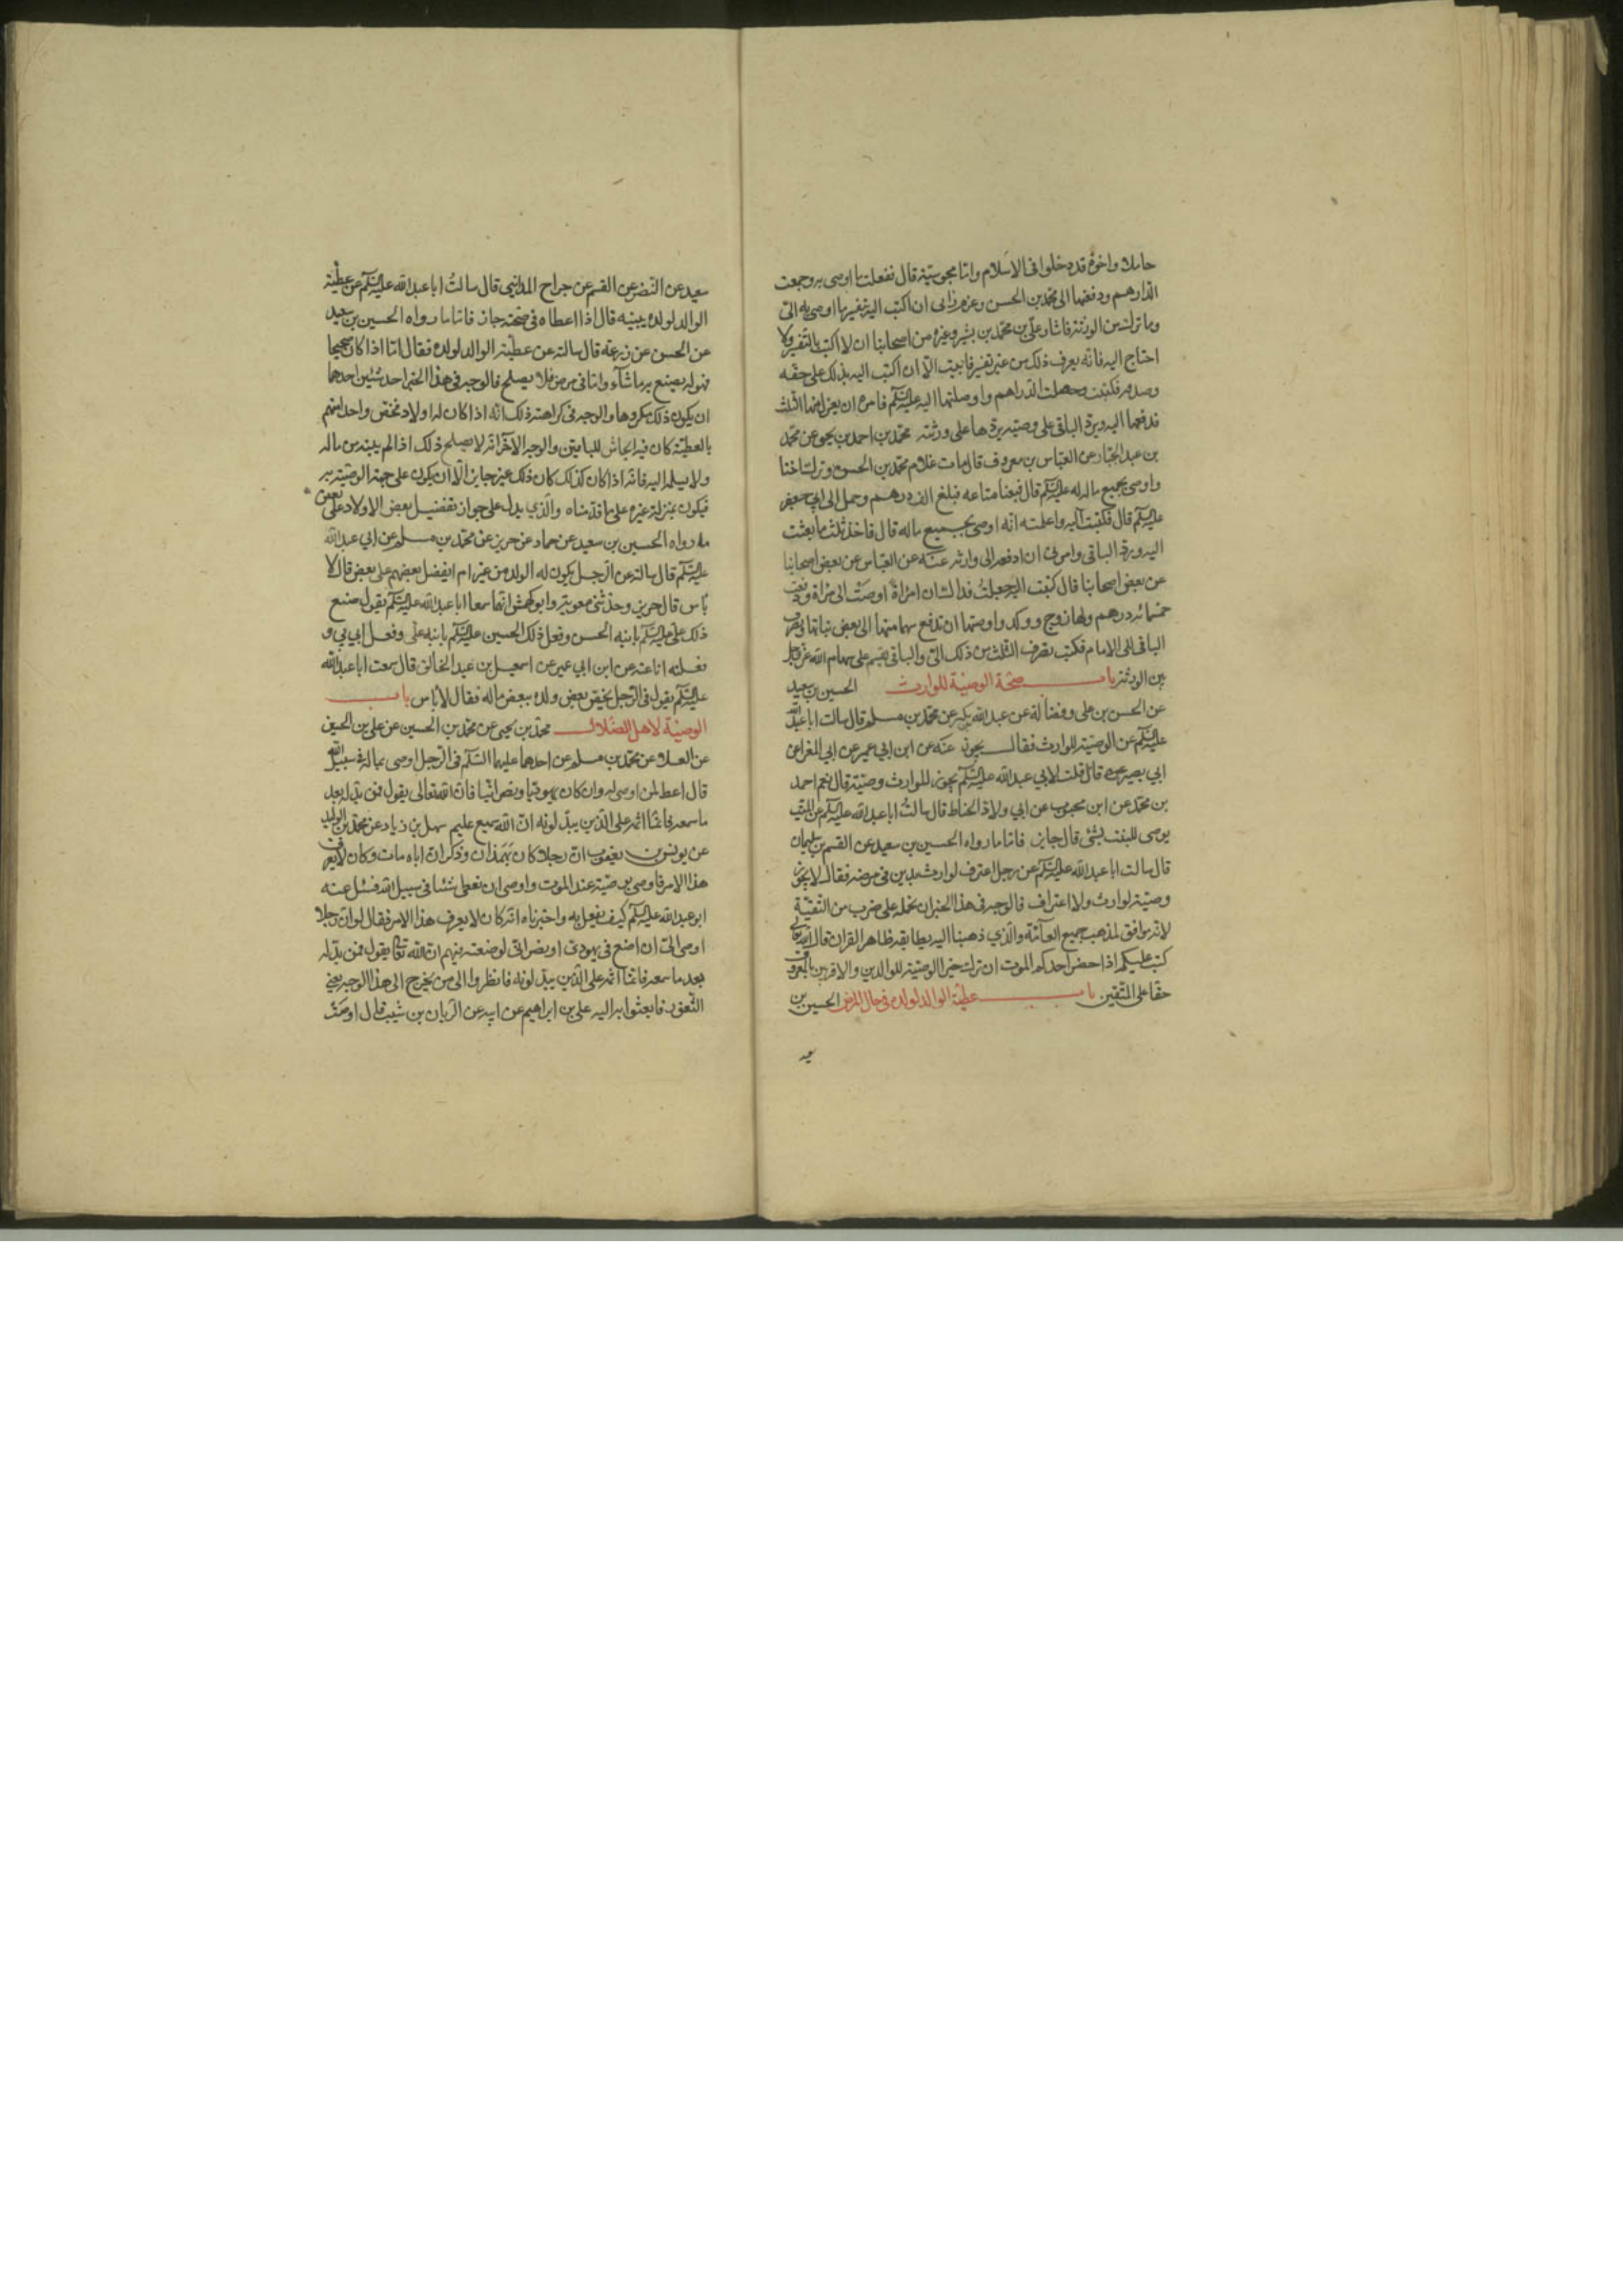 حاملا واخوة قد دخلوا فى الاسلام وانا مجوسية قال ففعلت ما اوصى به وجمعت
الدارهم ودفعتها الى محمد بن الحسن وعزم رايى ان اكتب اليه بتفسير ما اوصى به الىّ
وما ترك من الورثة فاشار علىّ بن محمد بن بشير وغيره من اصحابنا ان لا اكتب بالتفسير ولا
احتاج اليه فانه يعرف ذلك من غير تفسير فابيت الا ان اكتب اليه بذلك على حقه
وصدقه فكتبت وحصلت الدراهم واوصلتها اليه عليه السلم فامره ان يعزل منها الثلث
فدفعها اليه ويرد الباقى على وصيه يردها على ورثته محمد بن احمد بن يحيى عن محمد
بن عبد الجبار عن العباس بن معروف قال مات غلام محمد بن الحسن وترك اختا
واوصى بجميع ماله له عليه السلم قال فبعنا متاعه فبلغ الف درهم وحمل الى ابى جعفر
عليه السلم قال فكتبت اليه واعلمته انه اوصى بجميع ماله قال فاخذ ثلث ما بعثت
اليه ورد الباقى وامرنى ان ادفعه الى وارثه عنه عن العباس عن بعض اصحابنا
عن بعض اصحابنا قال كتبت اليه جعلت فداك ان امراة اوصت الى امراة ودفعت
خمسمائه درهم ولها زوج وولد واوصتها ان تدفع سهما منها الى بعض بناتها وتصرف
الباقى الى الامام فكتب يصرف الثلث من ذلك الىّ والباقى يقسم على سهام الله عز وجل
بين الورثة باب صحة الوصية للوارث الحسين بن سعيد
عن الحسن بن على وفضالة عن عبد الله بكير عن محمد بن مسلم قال سالت ابا عبد الله
عليه السلم عن الوصية للوارث فقال يجوز عنه عن ابن ابي عمير عن ابي المغرا عن
ابي بصير قال قلت لابي عبد الله عليه السلم يجوز للوارث وصية قال نعم احمد
بن محمد عن ابن محبوب عن ابي ولاد الحناط قال سالت ابا عبد الله عليه السلم عن الميت
يوصى للبنت بشئ قال جايز فاما ما رواه الحسين بن سعيد عن القسم بن سليمان
قال سالت ابا عبد الله عليه السلم عن رجل اعترف لوارث بدين فى مرضه فقال لا يجوز
وصية لوارث ولا اعتراف فالوجه فى هذا الخبر ان نحمله على ضرب من التقية
لانه موافق لمذهب جميع العامة والذي ذهبنا اليه يطابقه ظاهر القران قال الله تعالى
كتب عليكم اذا حضر احدكم الموت ان ترك خيرا الوصية للوالدين والاقربين بالمعروف
حقا على المتقين باب عطية الوالد لولده فى حال المرض الحسين بن
سعيد عن النضر عن القسم عن جراح المدايني قال سالت ابا عبد الله عليه السلم عن عطية
الوالد لولده يبينه قال اذا اعطاه فى صحته جاز فاما ما رواه الحسين بن سعيد
عن الحسن عن زرعة قال سالته عن عطية الوالد لولده فقال اما اذا كان صحيحا
فهو له يصنع به ما شآء واما فى مرض فلا يصلح فالوجه فى هذا الخبر احد شيئين احدهما
ان يكون ذلك مكروها والوجه فى كراهته ذلك انه اذا كان له اولاد فخص واحدا منهم
بالعطية كان فيه ايحاش للباقين والوجه الاخر انه لا يصلح ذلك اذا لم يبينه من ماله
ولا يسلمه اليه فانه اذا كان كذلك كان ذلك غير جايز الا ان يكون على جهة الوصية به
فيكون بمنزلة غيره على ما قدمناه والذي يدل على جواز تفضيل بعض الاولاد على بعض
ما رواه الحسين بن سعيد عن حماد عن حريز عن محمد بن مسلم عن ابي عبد الله
عليه السلم قال سالته عن الرجل يكون له الولد من غير ام ايفضل بعضهم على بعض قال لا
باس قال حريز وحدثنى معوية وابو كهمش انهما سمعا ابا عبد الله عليه السلم يقول صنع
ذلك على عليه السلم بابنه الحسن وفعل ذلك الحسين عليه السلم بابنه على وفعل ابي بي و
فعلته انا عنه عن ابن ابي عمير عن اسمعيل بن عبد الخالق قال سمعت ابا عبد الله
عليه السلم يقول فى الرجل يخص بعض ولده ببعض ماله فقال لا باس باب
الوصية لاهل الضلال محمد بن يحيى عن محمد بن الحسين عن على بن الحكم
عن العلا عن محمد بن مسلم عن احدهما عليهما السلم فى الرجل اوصى بماله فى سبيل الله
قال اعط لمن اوصى له وان كان يهوديا ونصرانيا فان الله تعالى يقول فمن بدله بعد
ما سمعه فانما اثمه على الذين يبدلونه ان الله سميع عليم سهل بن زياد عن محمد بن الوليد
عن يونس بن يعقوب ان رجلا كان بهمذان وذكر ان اباه مات وكان لا يعرف
هذا الامر فاوصى بوصية عند الموت واوصى ان يعطى شئا فى سبيل الله فسئل عنه
ابو عبد الله عليه السلم كيف يفعل به واخبرناه انه كان لا يعرف هذا الامر فقال لو ان رجلا
اوصى الىّ ان اضع فى يهودى او نصرانى لوضعته فيهم ان الله تعالى يقول فمن بدله
بعد ما سمعه فانما اثمه على الذين يبدلونه فانظروا الى من يخرج الى هذا الوجه يعنى
الثغور فابعثوا به اليه على بن ابراهيم عن ابيه عن الريان بن شبيب قال اوصت